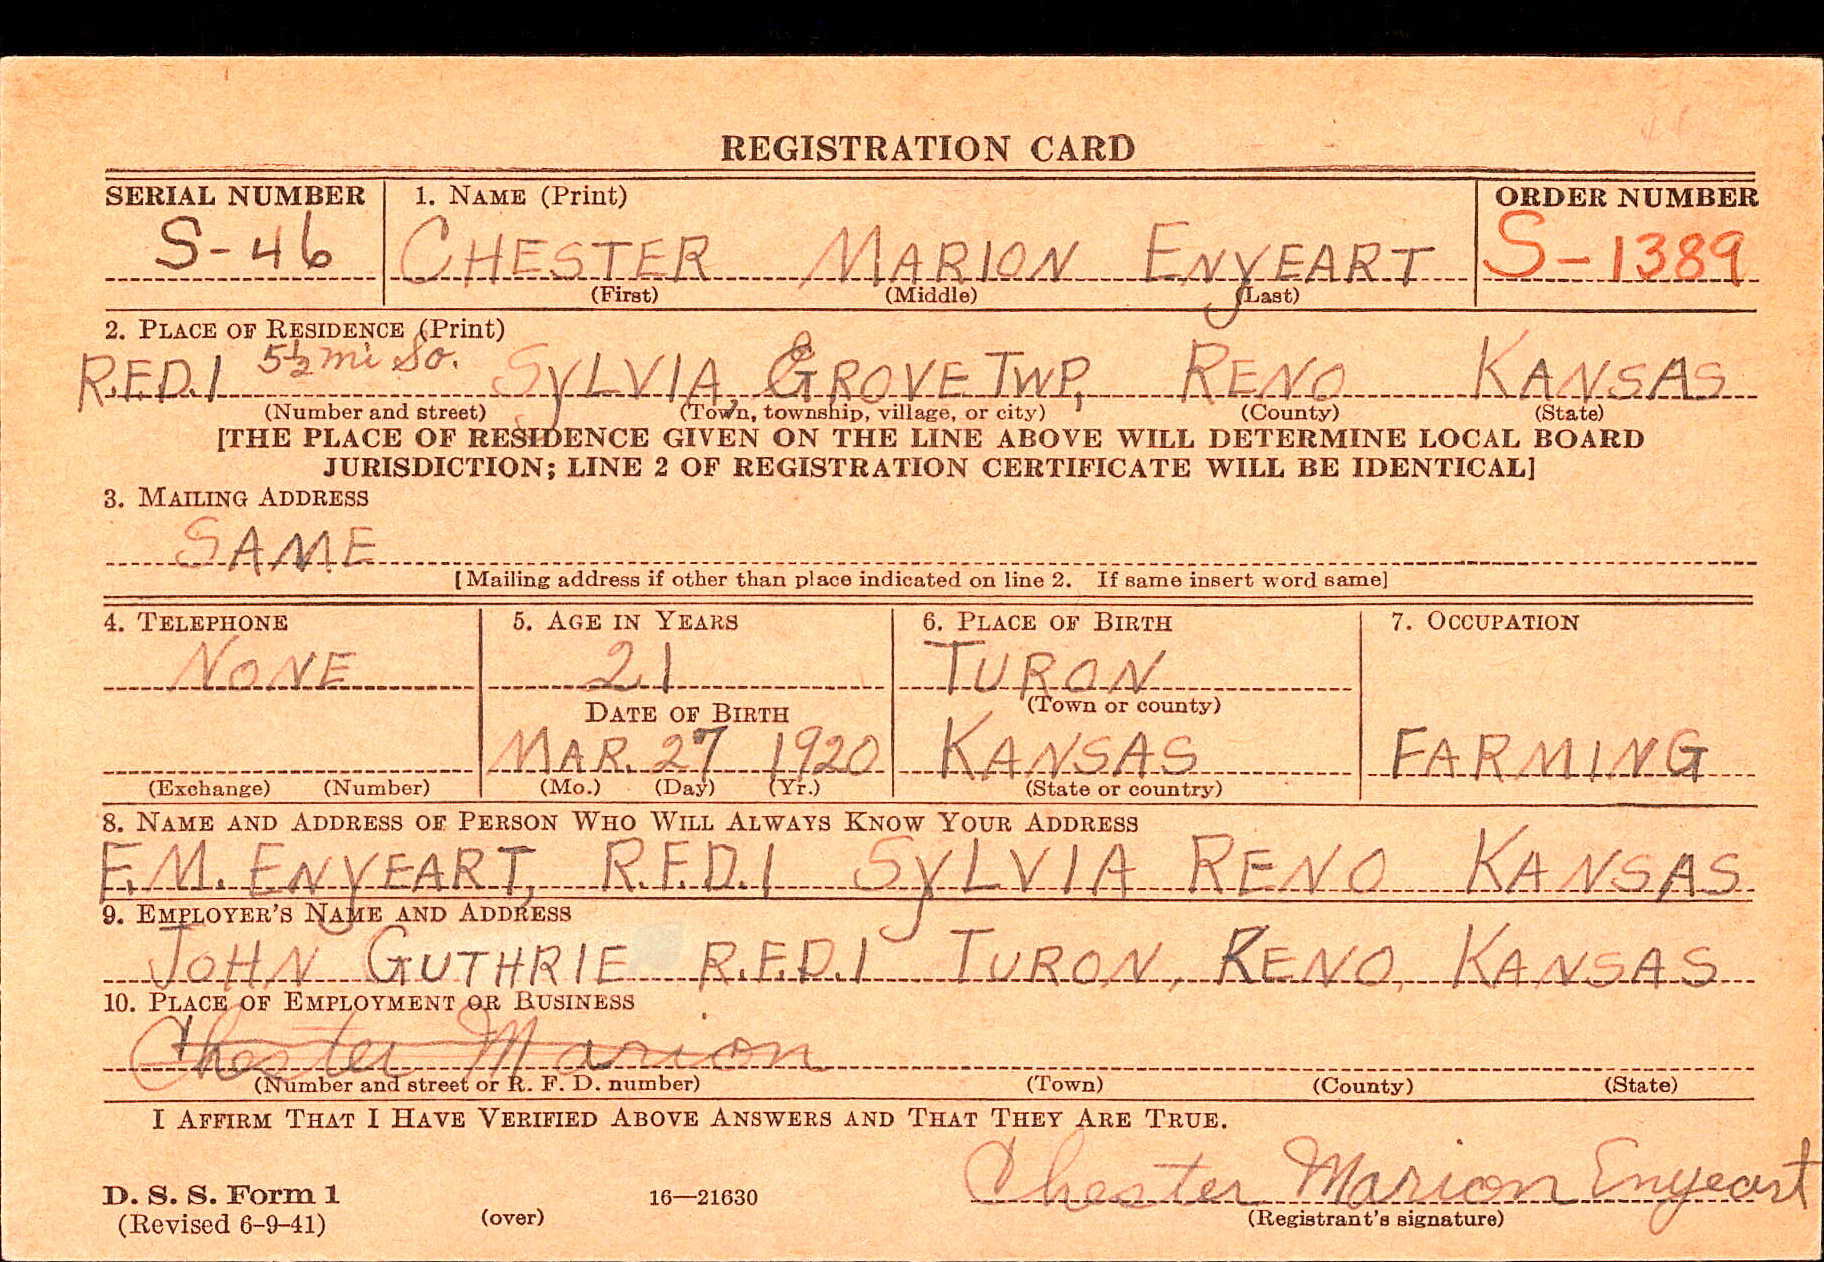 REGISTRATION CARD
SERIAL NUMBER 1. NAME (Print) ORDER NUMBER
S-46 CHESTER MARION ENYEART S-1389
(First) (Middle) (Last)
2. PLACE OF RESIDENCE (Print)
R.F.D.1 5½ mi So. SYLVIA, GROVE TWP, RENO KANSAS
(Number and street) (Town, township, village, or city) (County) (State)
[THE PLACE OF RESIDENCE GIVEN ON THE LINE ABOVE WILL DETERMINE LOCAL BOARD
JURISDICTION; LINE 2 OF REGISTRATION CERTIFICATE WILL BE IDENTICAL]
3. MAILING ADDRESS
SAME
[Mailing address if other than place indicated on line 2. If same insert word same]
4. TELEPHONE 5. AGE IN YEARS 6. PLACE OF BIRTH 7. OCCUPATION
NONE 21 TURON
DATE OF BIRTH (Town or county)
MAR. 27 1920 KANSAS FARMING
(Exchange) (Number) (Mo.) (Day) (Yr.) (State or country)
8. NAME AND ADDRESS OF PERSON WHO WILL ALWAYS KNOW YOUR ADDRESS
F.M. ENYEART, R.F.D.1 SYLVIA RENO KANSAS
9. EMPLOYER'S NAME AND ADDRESS
JOHN GUTHRIE R.F.D.1 TURON, RENO, KANSAS
10. PLACE OF EMPLOYMENT OR BUSINESS
Chester Marion
(Number and street or R. F. D. number) (Town) (County) (State)
I AFFIRM THAT I HAVE VERIFIED ABOVE ANSWERS AND THAT THEY ARE TRUE.
Chester Marion Enyeart
D. S. S. Form 1 16—21630
(Revised 6-9-41) (over) (Registrant's signature)